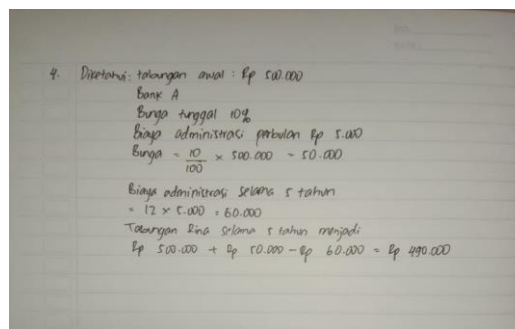 4. Diketahui: tabungan awal : Rp 500.000
Bank A
Bunga tunggal 10%
Biaya administrasi perbulan Rp 5.000
Bunga = 10/100 × 500.000 = 50.000
Biaya administrasi selama 5 tahun
= 12 × 5.000 = 60.000
Tabungan Rina selama 5 tahun menjadi
Rp 500.000 + Rp 50.000 - Rp 60.000 = Rp 490.000